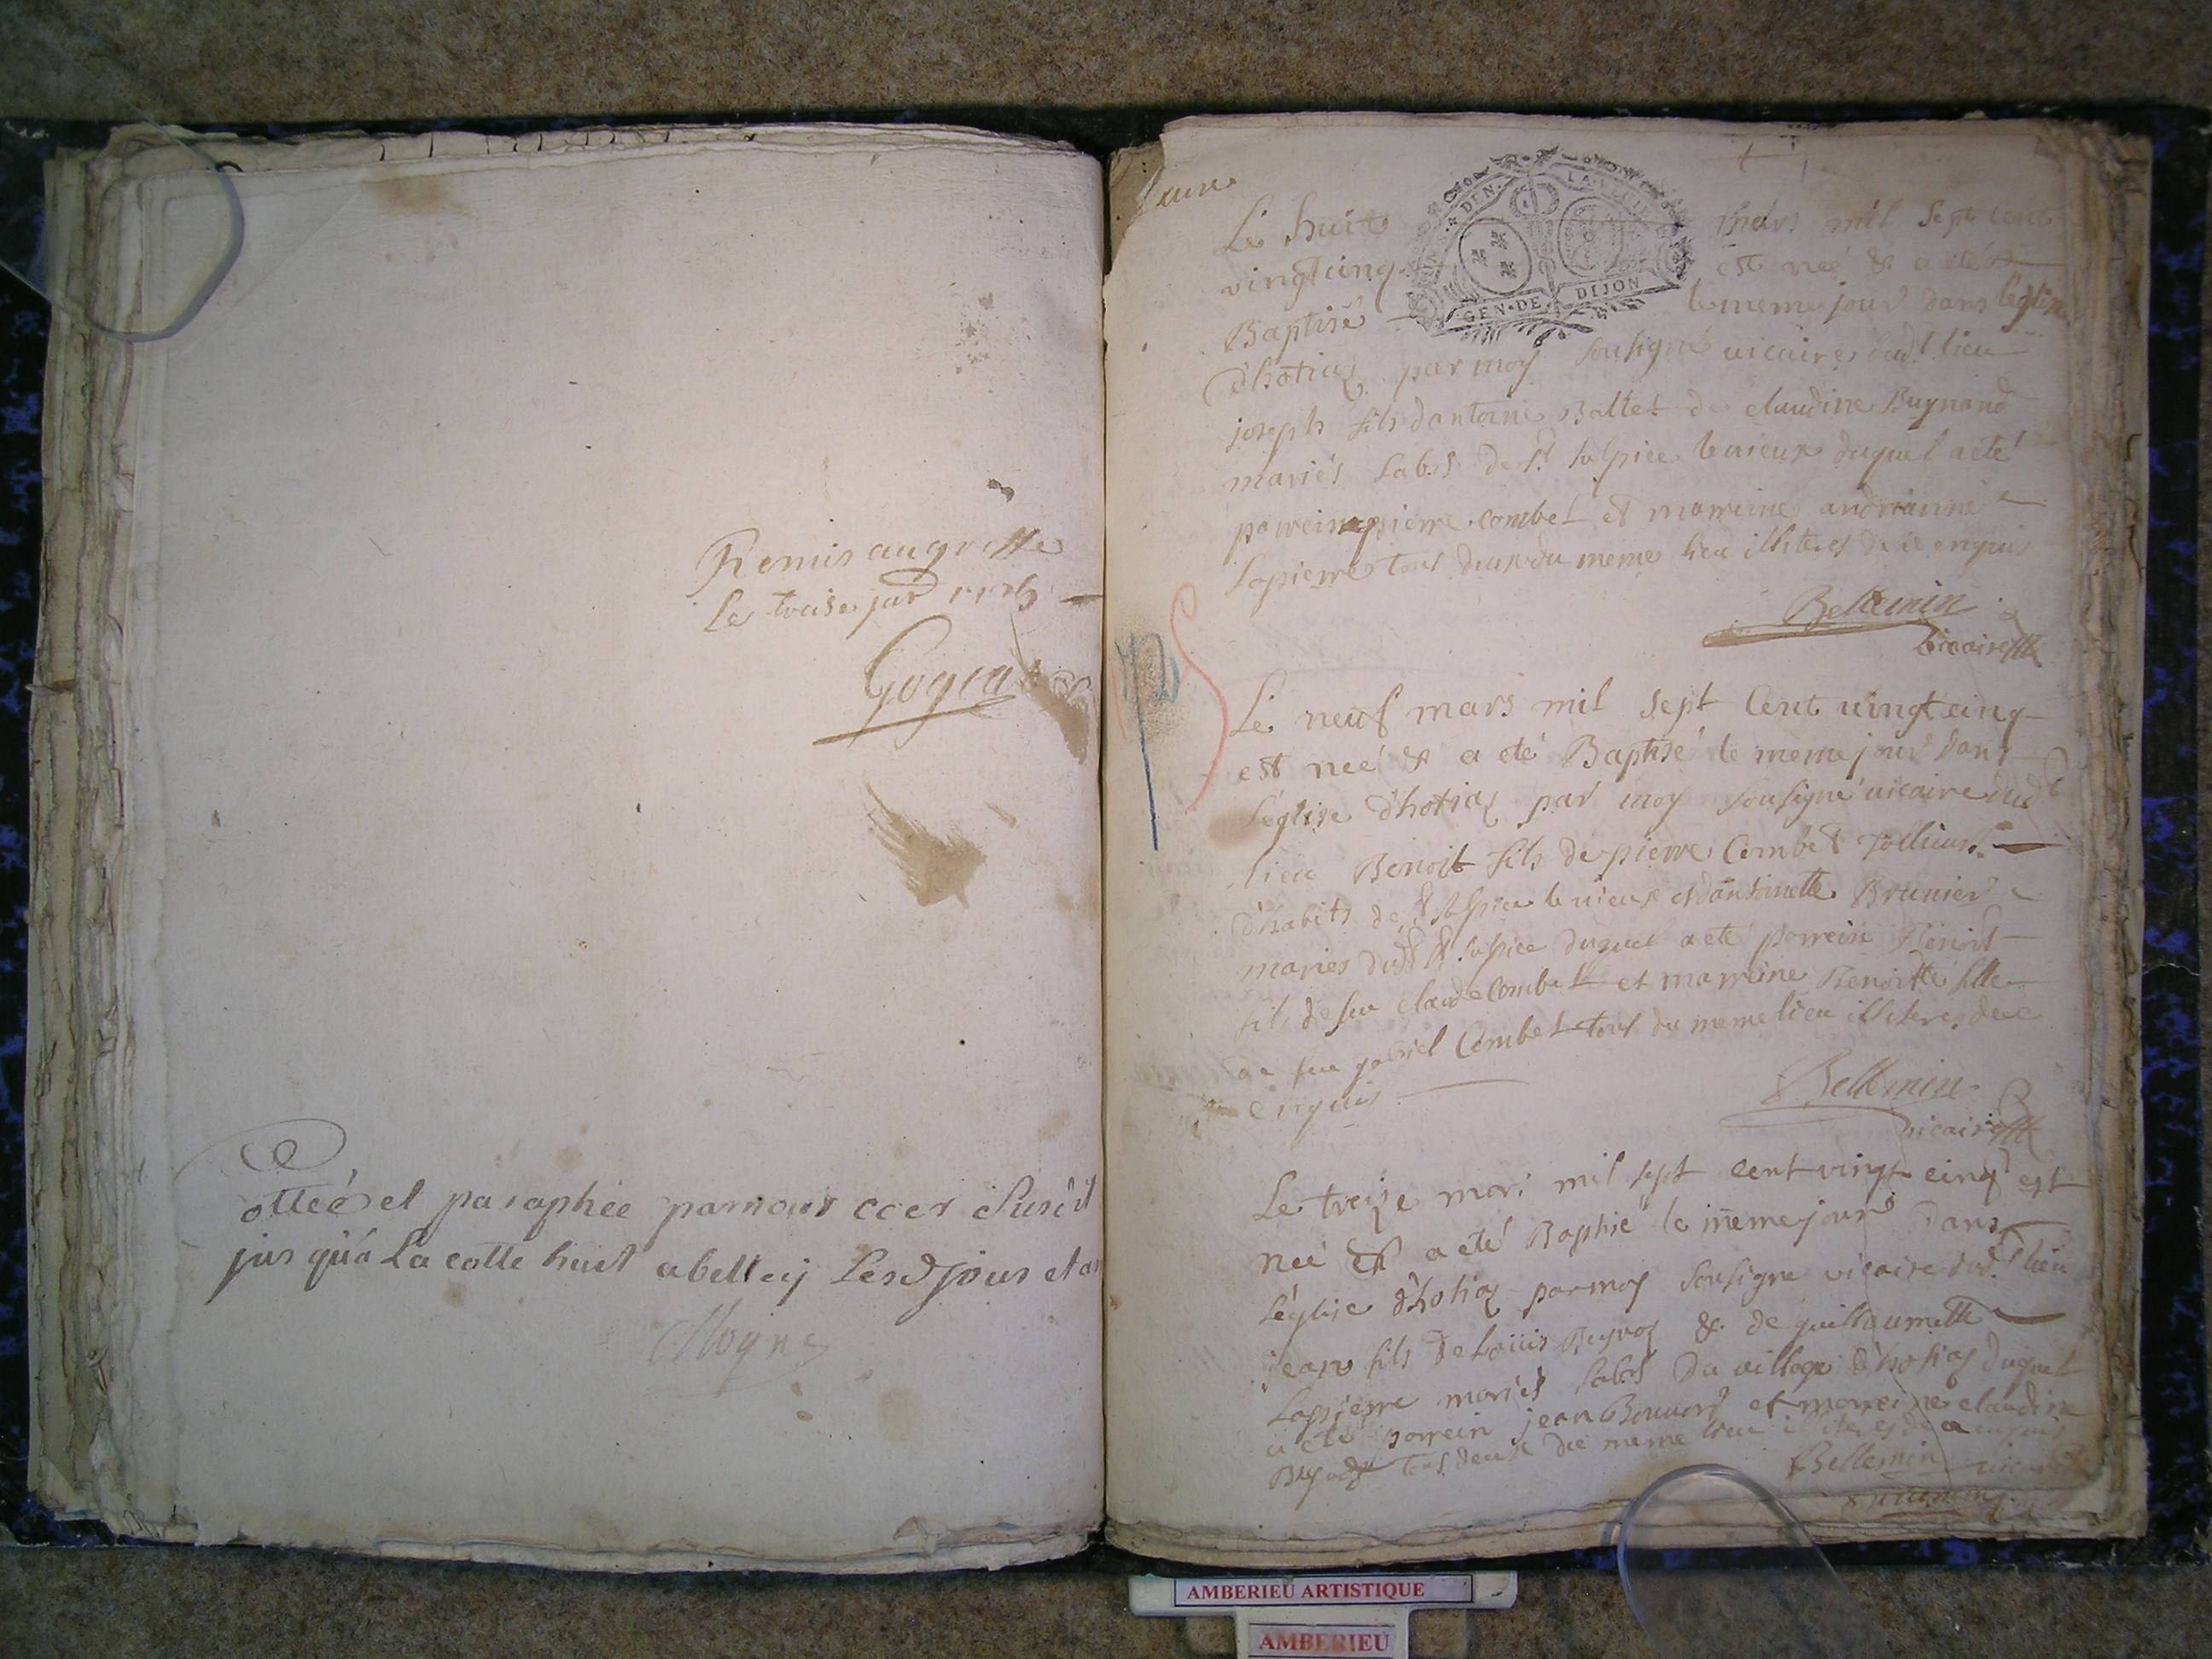 Remis au greffe
Le treise
Gogea
ottéé et paraphée par nous
jus qu'a La cotte huit a belley Lesd jours et an
Moyne
GEN·DE DIJON
Le huit mars mil sept cent
vingt cinq est neé & a été
Baptisé le meme jour dans leglise
d'hotiaz par moy sousigné vicaire dud.t lieu
joseph fils dantoine Ballet & de claudine Bugnand
mariés labrs de st sulpice le vieux duquel a eté
parrein pierre combet et marreine andrianne
Lapierre tous deux du meme lieu illiteres de ce enquis
Bellemin
vicaire
1725
Le neuf mars mil sept Cent vingt cinq
est neé & a eté Baptisé le meme jour dans
L'eglise d'hotiaz par moy sousigné vicaire dud
lieu Benoit fils de pierre Combet
d'habits de st sulpice le vieux et dantoinette Brunier
mariés dud st sulpice duquel a eté parrein Benoit
fils de feu claude Combet et marreine Benoitte fille
de feu gabriel Combet tous du meme lieu illiteres de ce
enquis
Bellemin
vicaire
Le treize mars mil sept cent vingt cinq est
neé & a eté Baptisé le meme jour dans
L'eglise d'hotiaz par moy sousigné vicaire dud.t lieu
jean fils de Loüis & de guillaumette
Lapierre mariés labrs du village d'hotiaz duquel
a eté parrein jean Bouvard et marreine claudine
tous deux du meme lieu illiteres de ce enquis
Bellemin vicaire
AMBERIEU ARTISTIQUE
AMBERIEU